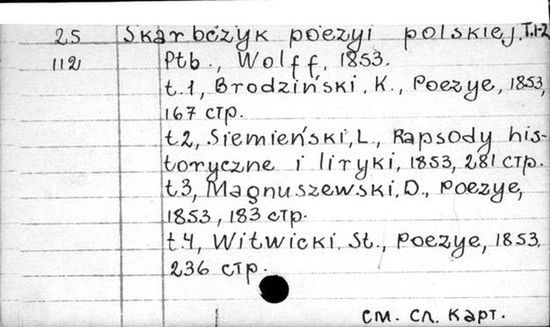 25 Skarbczyk poezyi polskiej. T.1-2
112 Ptb., Wolff, 1853.
t.1, Brodziński, K., Poezye, 1853,
167 стр.
t2, Siemieński, L., Rapsody his-
toryczne i liryki, 1853, 281 стр.
t.3, Magnuszewski, D., Poezye,
1853, 183 стр.
t.4, Witwicki, St., Poezye, 1853,
236 стр.
см. сл. карт.